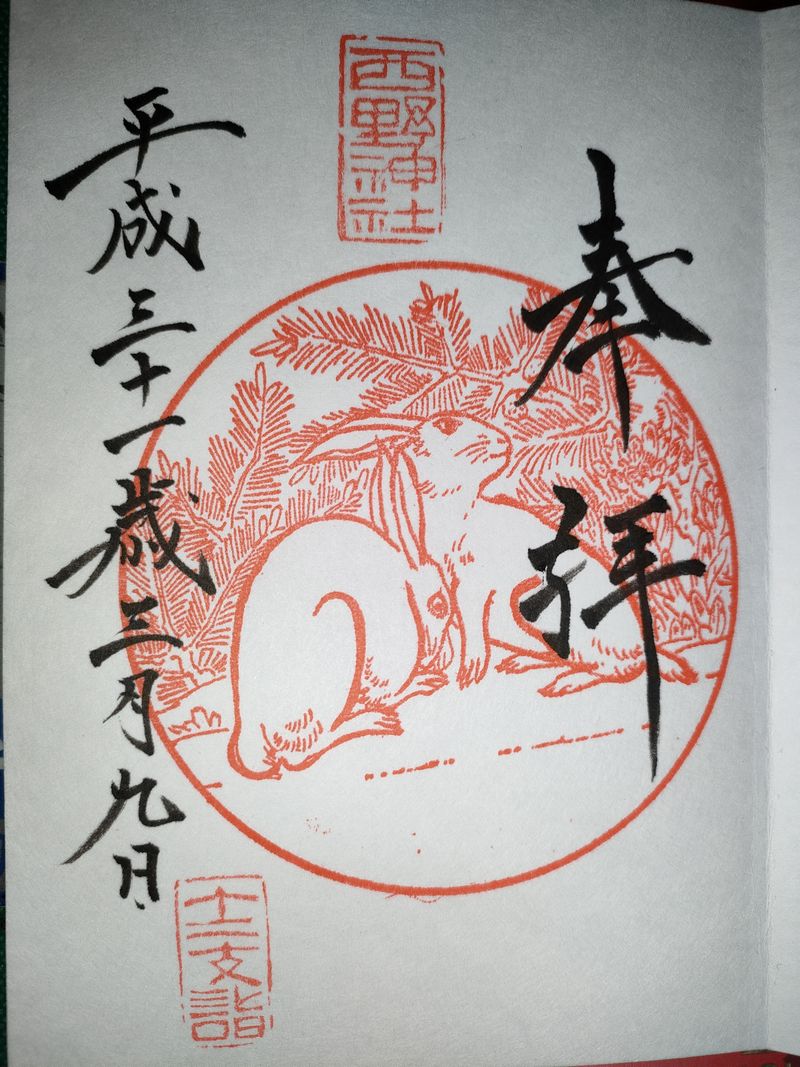 奉拝
西野神社
平成三十一歳三月九日
十二支詣